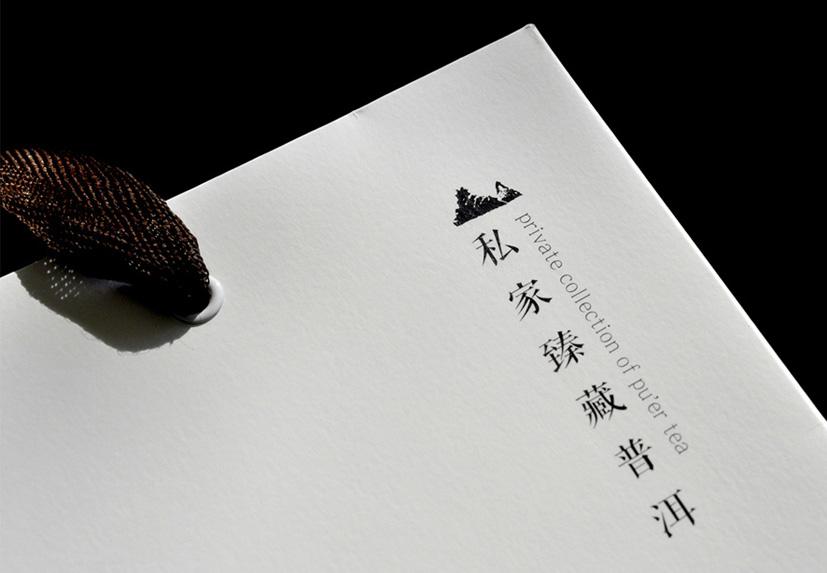 私家臻藏普洱
private collection of pu'er tea